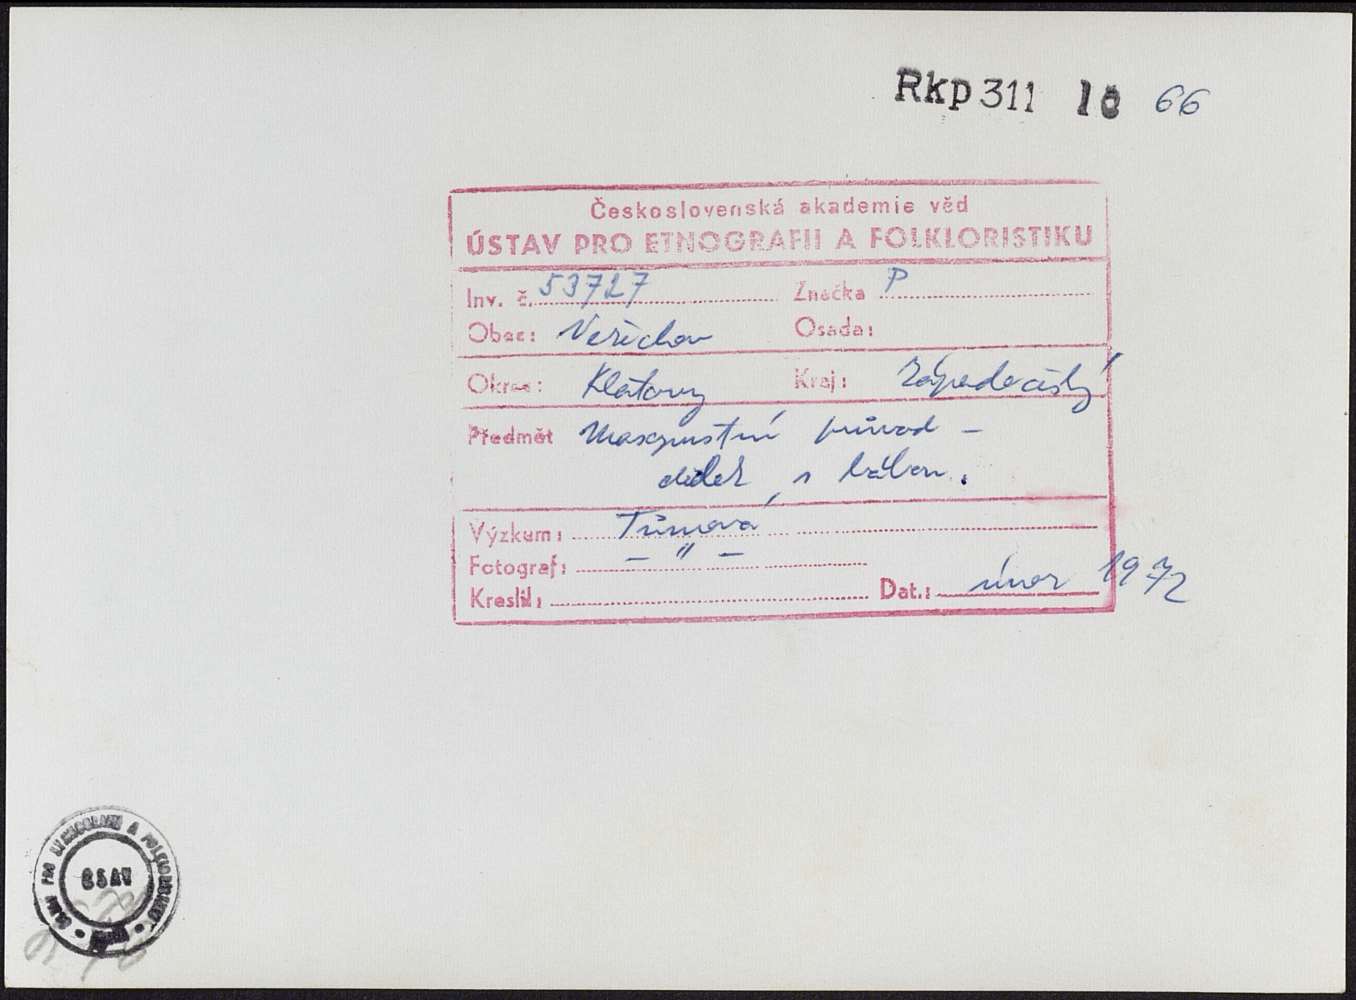 Rkp 311 16 66
Československá akademie věd
ÚSTAV PRO ETNOGRAFII A FOLKLORISTIKU
Inv. č. 53727 Značka P
Obec: Věřichov Osada:
Okres: Klatovy Kraj: Západočeský
Předmět Masopustní průvod –
dědek s bábou.
Výzkum: Tůmová
Fotograf: – " –
Kreslil: Dat.: únor 1972
ÚSTAV PRO ETNOGRAFII A FOLKLORISTIKU
ČSAV